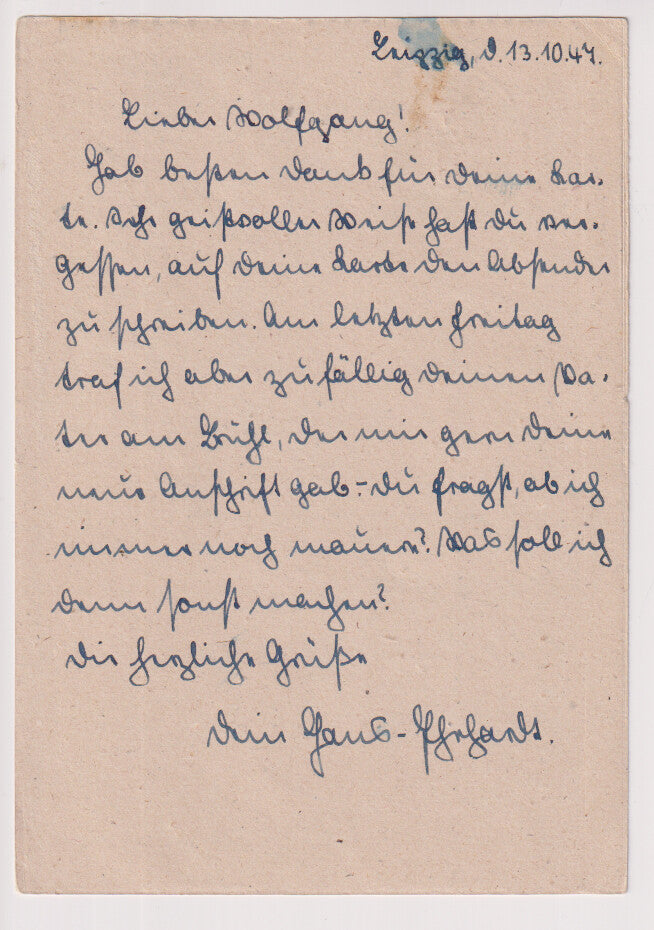 Leipzig, d. 13.10.47.
Lieber Wolfgang!
Hab besten Dank für Deine Kar-
te. Sehr geistvoller Weise hast Du ver-
gessen, auf Deine Karte den Absender
zu schreiben. Am letzten Freitag
traf ich aber zufällig Deinen Va-
ter am Brühl, der mir gern Deine
neue Anschrift gab.- Du fragst, ob ich
immer noch mauere? Was soll ich
denn sonst machen?
Dir herzliche Grüße
Dein Hans-Ehrhardt.